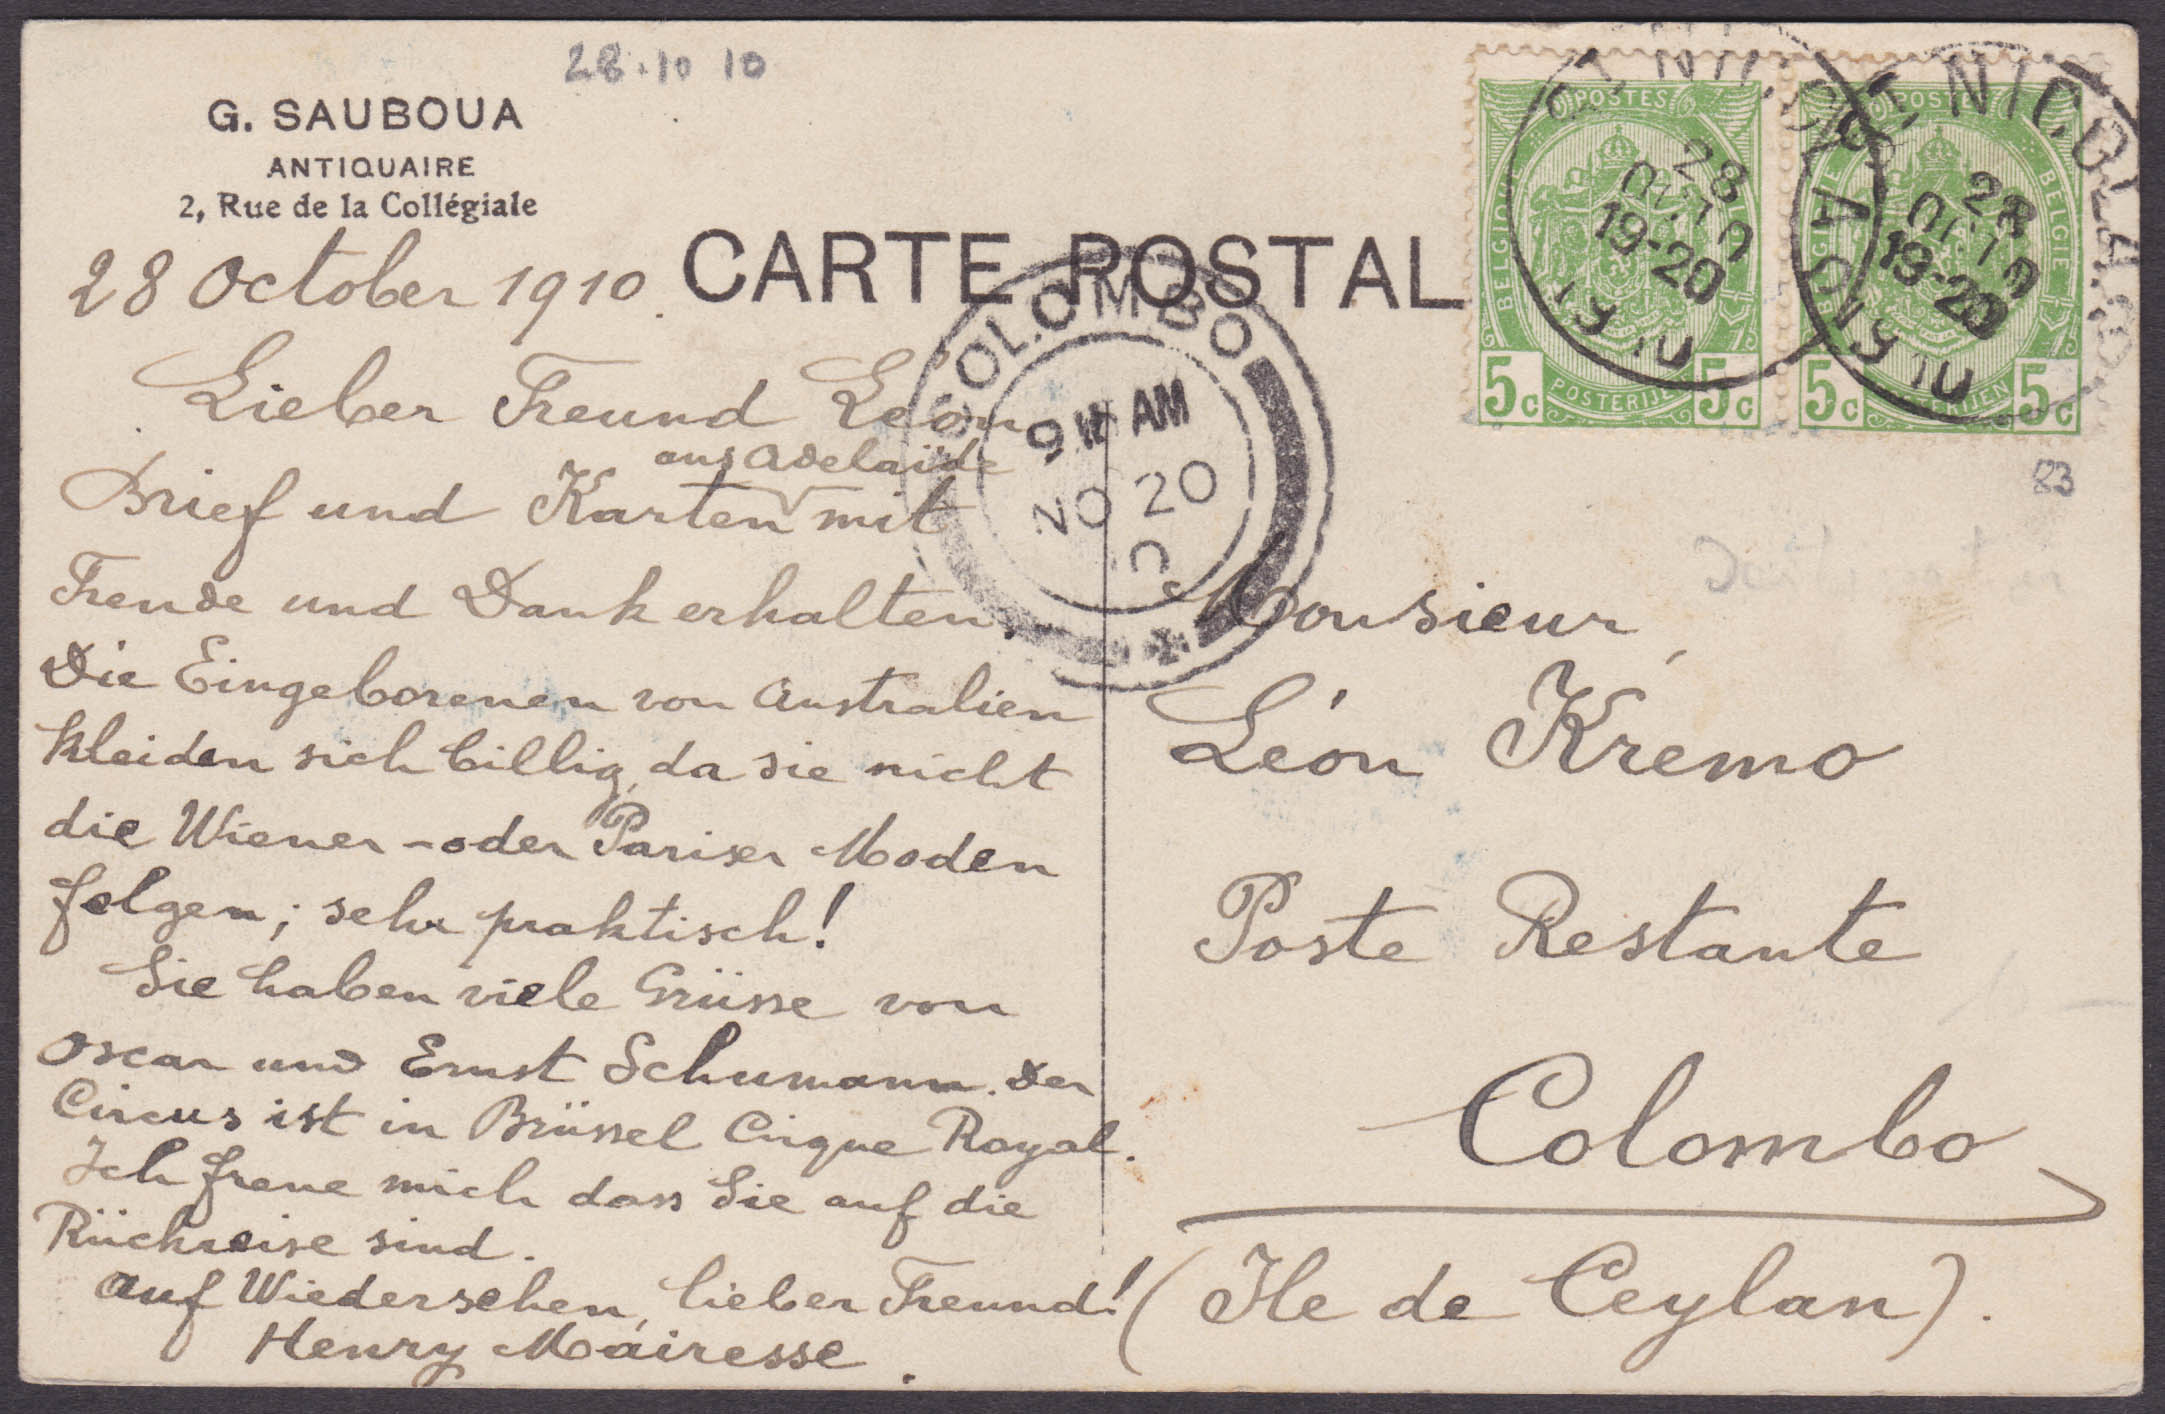 28.10 10
G. SAUBOUA
ANTIQUAIRE
2, Rue de la Collégiale
CARTE POSTAL
28 October 1910.
Lieber Freund Léon
aus Adelaïde
Brief und Karten mit
Freude und Dank erhalten.
Die Eingeborenen von Australien
kleiden sich billig, da sie nicht
die Wiener- oder Pariser Moden
folgen; sehr praktisch!
Sie haben viele Grüsse von
Oscar und Ernst Schumann. Der
Circus ist in Brüssel Cirque Royal.
Ich freue mich dass Sie auf die
Rückreise sind.
Auf Wiedersehen, lieber Freund!
Henry Mairesse.
COLOMBO
9 AM
NO 20
10
POSTES
BELGIQUE
BELGIE
5c POSTERIJEN 5c
ST NICOLAAS
28
OCT
19-20
1910
POSTES
BELGIQUE
BELGIE
5c POSTERIJEN 5c
ST NICOLAAS
28
OCT
19-20
1910
83
Monsieur,
Léon Kremo
Poste Restante
Colombo
(Ile de Ceylan).